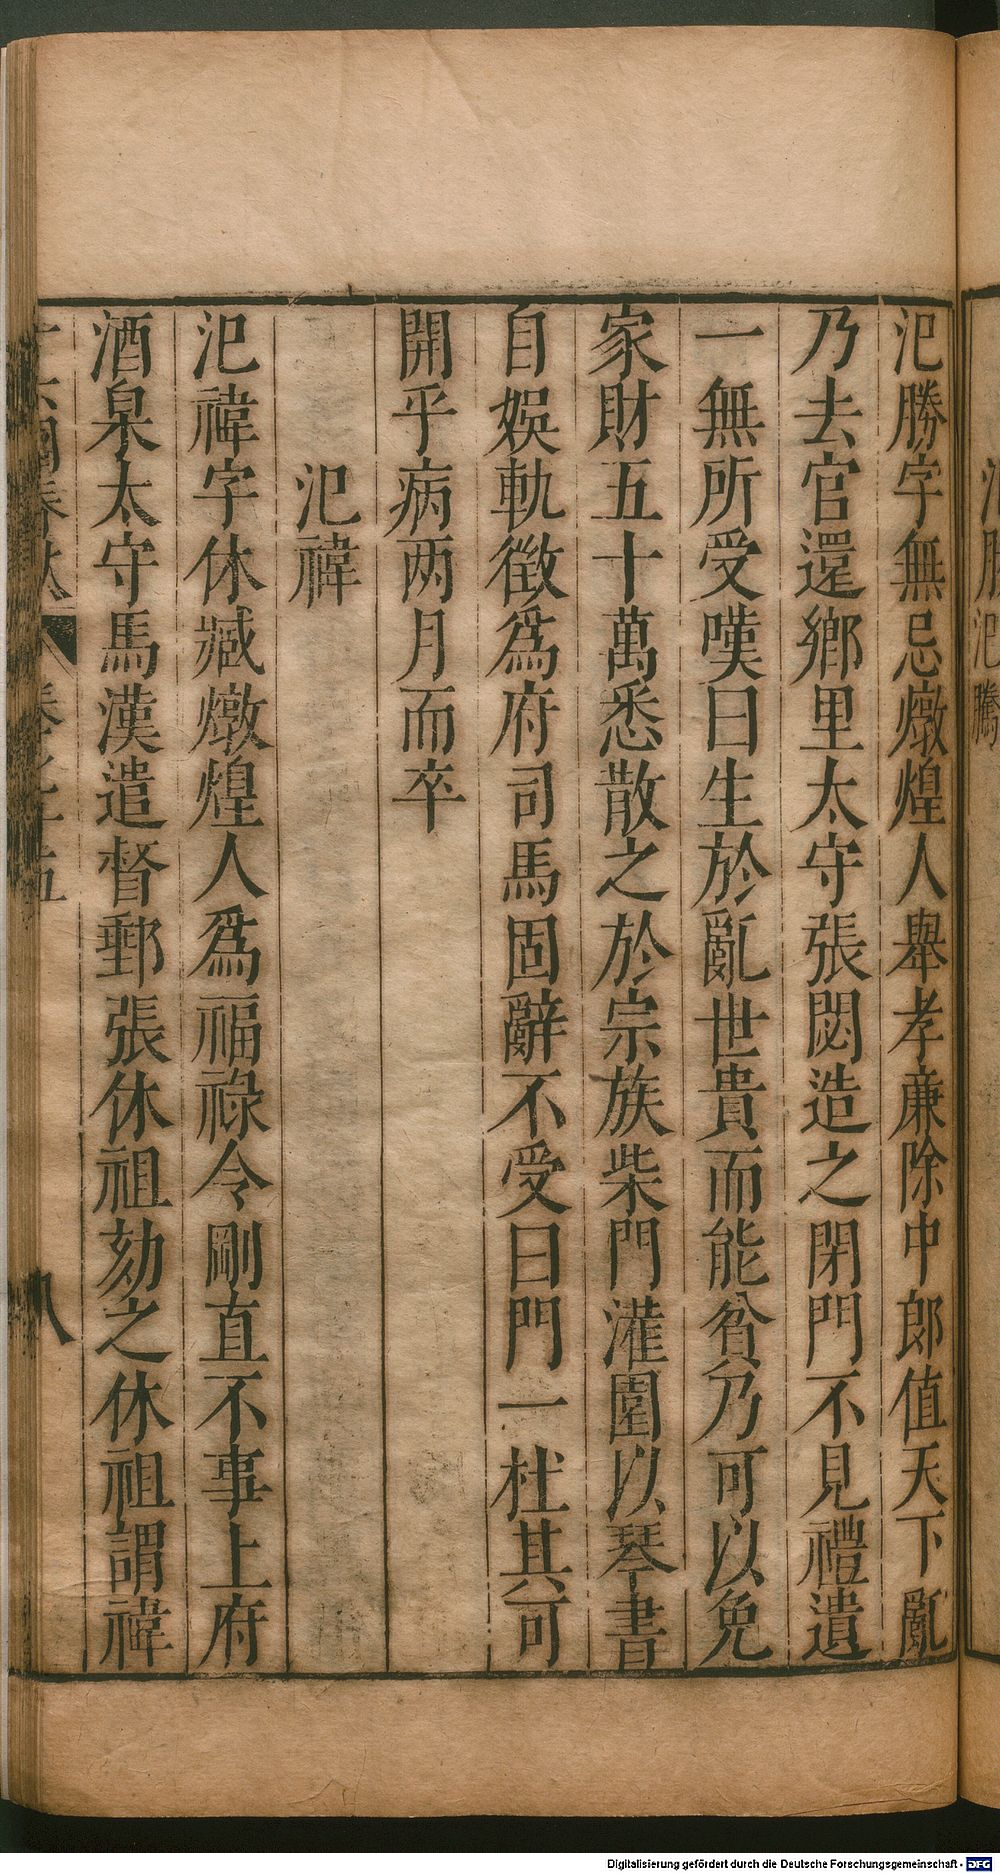 氾勝字無忌燉煌人舉孝廉除中郎值天下亂
乃去官還鄉里太守張閟造之閉門不見禮遺
一無所受嘆曰生於亂世貴而能貧乃可以免
家財五十萬悉散之於宗族柴門灌園以琴書
自娛軌徵爲府司馬固辭不受曰門一杜其可
開乎病两月而卒
氾禕
氾禕字休臧燉煌人爲福祿令剛直不事上府
酒泉太守馬漢遣督郵張休祖劾之休祖謂禕
國春秋
八
Digitalisierung gefördert durch die Deutsche Forschungsgemeinschaft - DFG